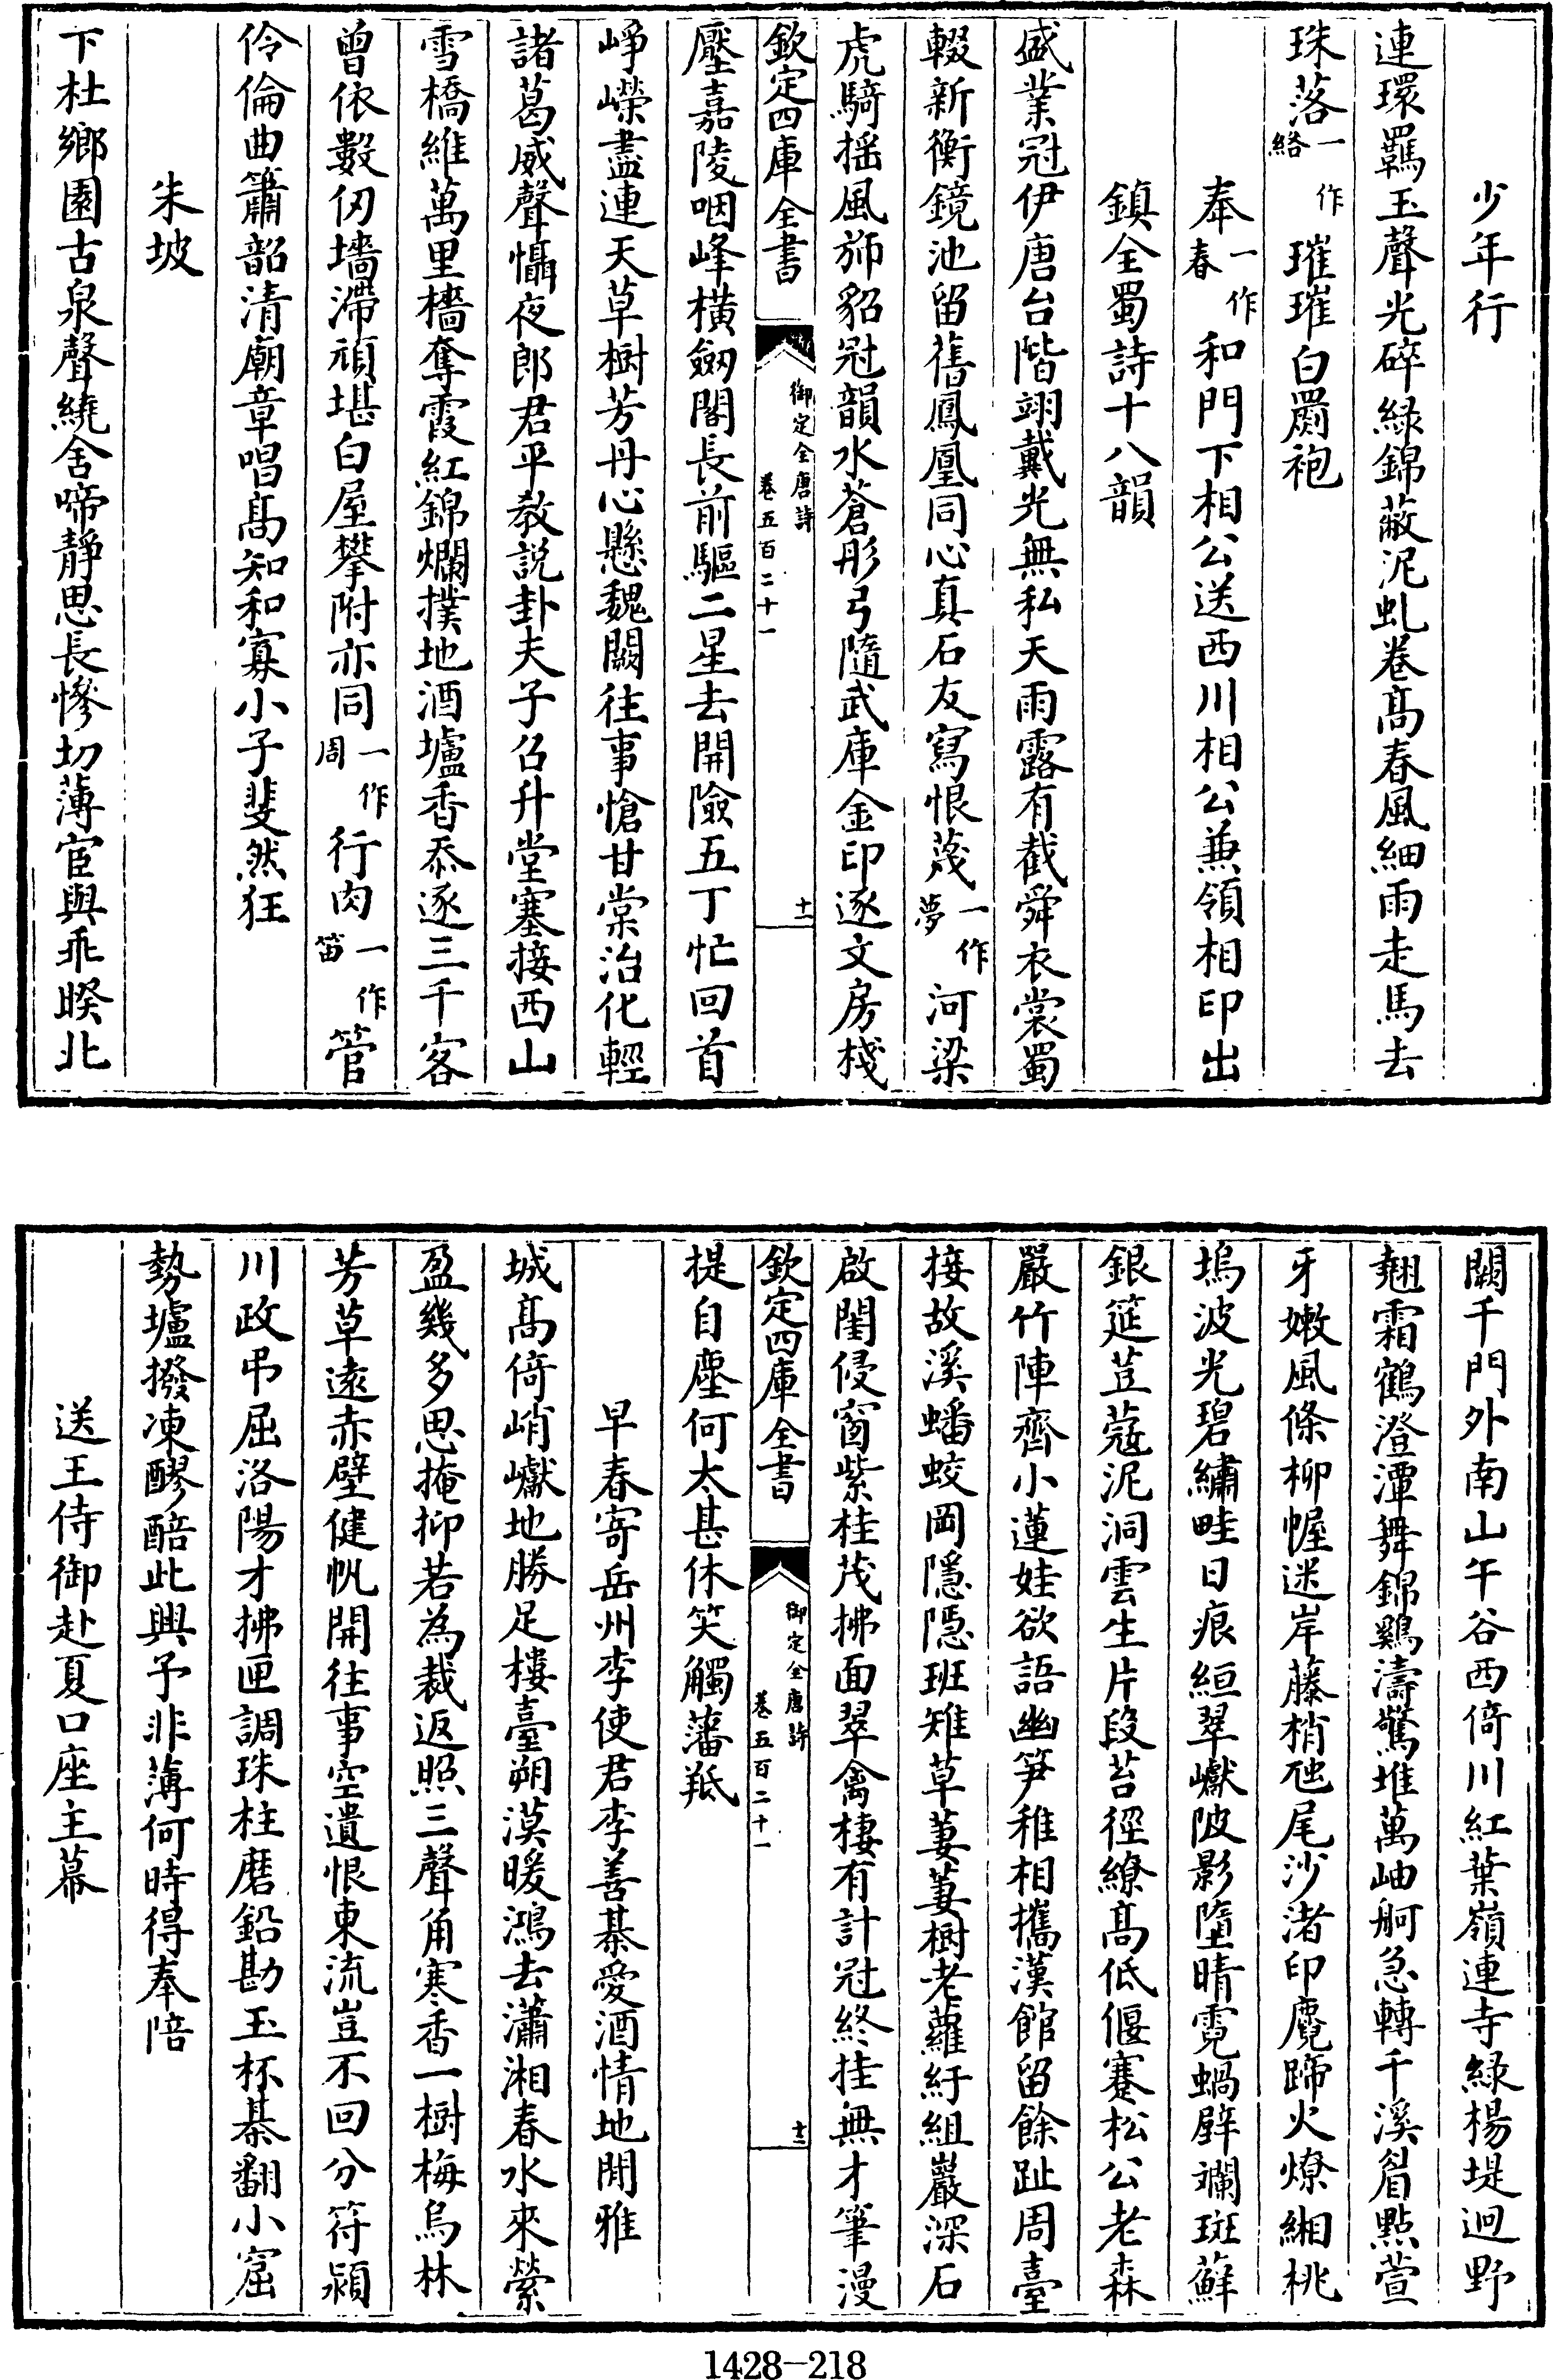 少年行
連環羈玉聲光碎綠錦蔽泥虬卷髙春風細雨走馬去
珠落一作絡璀璀白罽袍
奉一作春和門下相公送西川相公兼領相印出
鎮全蜀詩十八韻
盛業冠伊唐台階翊戴光無私天雨露有截舜衣裳蜀
輟新衡鏡池留舊鳳凰同心真石友寫恨蔑一作夢河梁
虎騎揺風斾貂冠韻水蒼彤弓隨武庫金印逐文房棧
欽定四庫全書
御定全唐詩
卷五百二十一
十一
壓嘉陵咽峰横劔閣長前驅二星去開險五丁忙回首
崢嶸盡連天草樹芳丹心懸魏闕往事愴甘棠治化輕
諸葛威聲懾夜郎君平教説卦夫子召升堂塞接西山
雪橋維萬里檣奪霞紅錦爛撲地酒壚香忝逐三千客
曾依數仞墻滯頑堪白屋攀附亦同一作周行肉一作笛管
伶倫曲簫韶清廟章唱髙知和寡小子斐然狂
朱坡
下杜鄉園古泉聲繞舍啼靜思長慘切薄宦與乖暌北
闕千門外南山午谷西倚川紅葉嶺連寺緑楊堤迥野
翹霜鶴澄潭舞錦鷄濤驚堆萬岫舸急轉千溪眉點萱
牙嫰風條柳幄迷岸藤梢虺尾沙渚印麑蹄火燎緗桃
塢波光碧繡畦日痕絙翠巘陂影墮晴霓蝸壁斕斑蘚
銀筵荳蔻泥洞雲生片段苔徑繚髙低偃蹇松公老森
嚴竹陣齊小蓮娃欲語幽笋稚相攜漢館留餘趾周臺
接故溪蟠蛟岡隱隱班雉草萋萋樹老蘿紆組巖深石
啟閨侵窗紫桂茂拂面翠禽棲有計冠終挂無才筆漫
欽定四庫全書
御定全唐詩
卷五百二十一
十二
提自塵何太甚休笑觸藩羝
早春寄岳州李使君李善棊愛酒情地閒雅
城髙倚峭巘地勝足樓臺朔漠暖鴻去瀟湘春水來縈
盈幾多思掩抑若為裁返照三聲角寒香一樹梅烏林
芳草遠赤壁健帆開往事空遺恨東流豈不回分符潁
川政弔屈洛陽才拂匣調珠柱磨鉛勘玉杯棊翻小窟
勢壚撥凍醪醅此興予非薄何時得奉陪
送王侍御赴夏口座主幕
1428-218